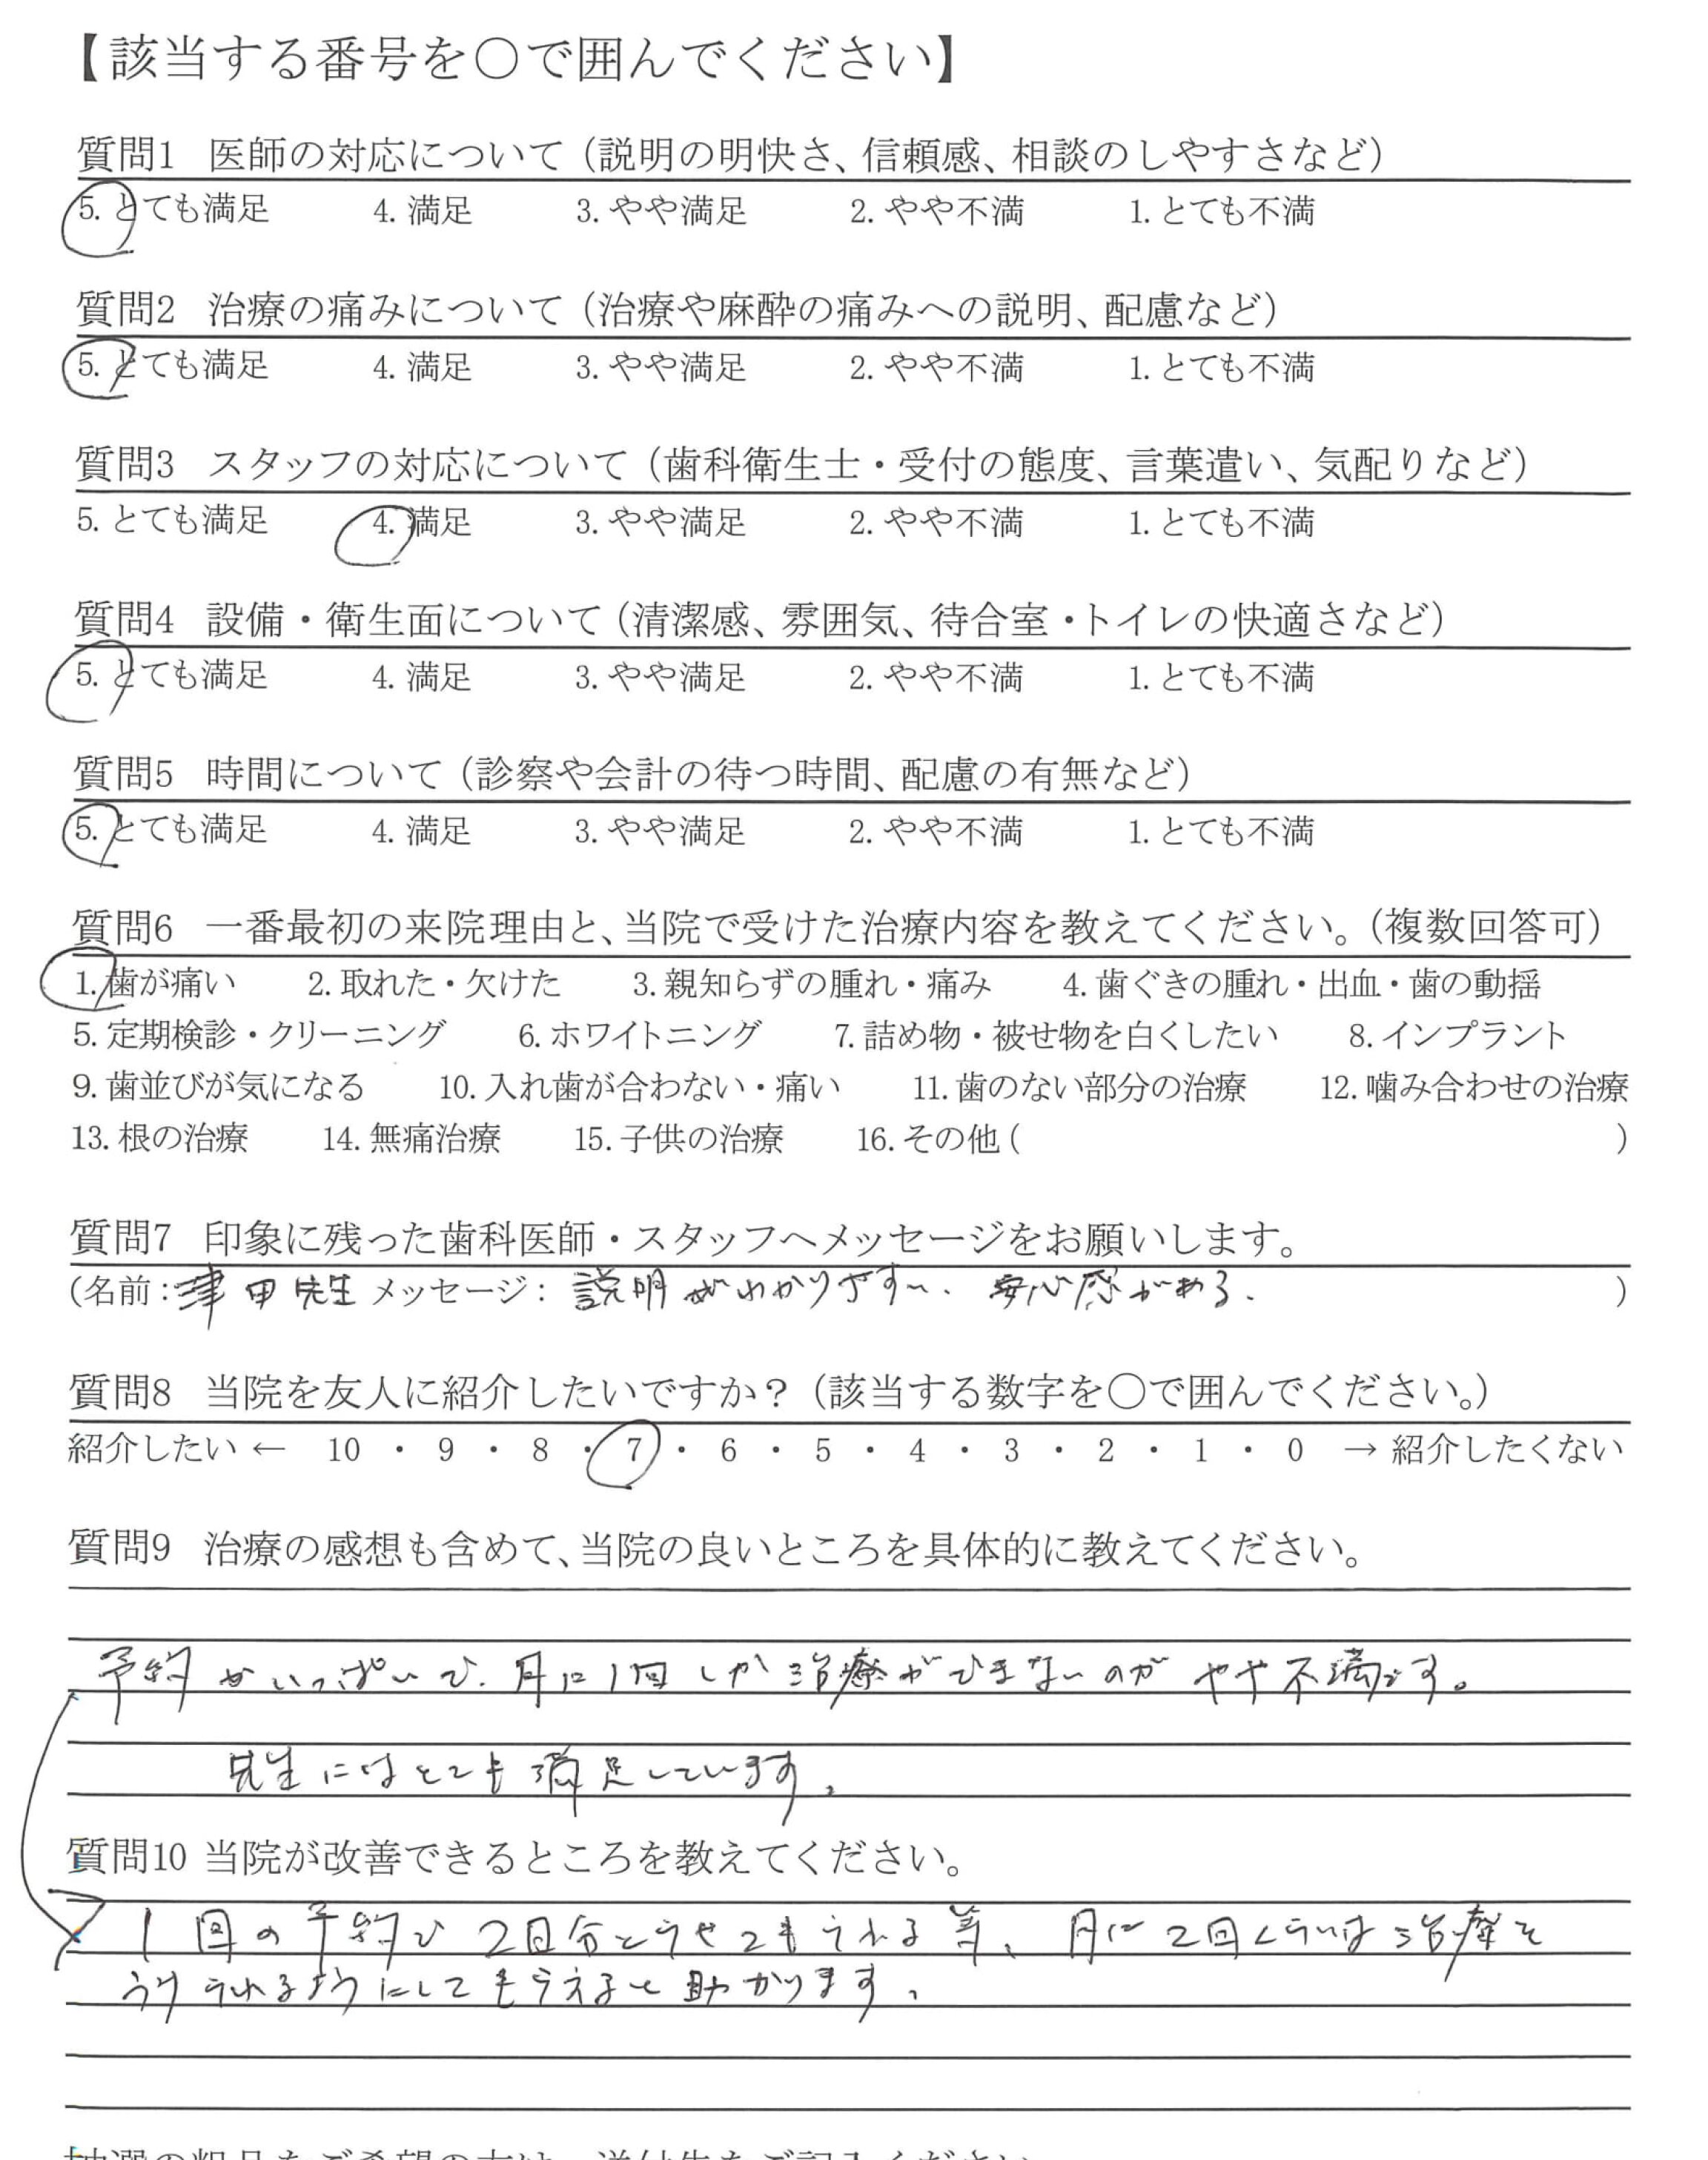 【該当する番号を○で囲んでください】
質問1 医師の対応について（説明の明快さ、信頼感、相談のしやすさなど）
5. とても満足 4. 満足 3. やや満足 2. やや不満 1. とても不満
質問2 治療の痛みについて（治療や麻酔の痛みへの説明、配慮など）
5. とても満足 4. 満足 3. やや満足 2. やや不満 1. とても不満
質問3 スタッフの対応について（歯科衛生士・受付の態度、言葉遣い、気配りなど）
5. とても満足 4. 満足 3. やや満足 2. やや不満 1. とても不満
質問4 設備・衛生面について（清潔感、雰囲気、待合室・トイレの快適さなど）
5. とても満足 4. 満足 3. やや満足 2. やや不満 1. とても不満
質問5 時間について（診察や会計の待つ時間、配慮の有無など）
5. とても満足 4. 満足 3. やや満足 2. やや不満 1. とても不満
質問6 一番最初の来院理由と、当院で受けた治療内容を教えてください。（複数回答可）
1. 歯が痛い 2. 取れた・欠けた 3. 親知らずの腫れ・痛み 4. 歯ぐきの腫れ・出血・歯の動揺
5. 定期検診・クリーニング 6. ホワイトニング 7. 詰め物・被せ物を白くしたい 8. インプラント
9. 歯並びが気になる 10. 入れ歯が合わない・痛い 11. 歯のない部分の治療 12. 噛み合わせの治療
13. 根の治療 14. 無痛治療 15. 子供の治療 16. その他（ ）
質問7 印象に残った歯科医師・スタッフへメッセージをお願いします。
（名前：津田先生 メッセージ：説明がわかりやすい、安心感がある。）
質問8 当院を友人に紹介したいですか？（該当する数字を○で囲んでください。）
紹介したい ← 10 ・ 9 ・ 8 ・ 7 ・ 6 ・ 5 ・ 4 ・ 3 ・ 2 ・ 1 ・ 0 → 紹介したくない
質問9 治療の感想も含めて、当院の良いところを具体的に教えてください。
予約がいっぱいで、月に1回しか治療ができないのがやや不満です。
先生にはとても満足しています。
質問10 当院が改善できるところを教えてください。
1回の予約で2回分とらせてもらえる等、月に2回くらいは治療を
うけられるようにしてもらえると助かります。
抽選の粗品をご希望の方は、送付先をご記入ください